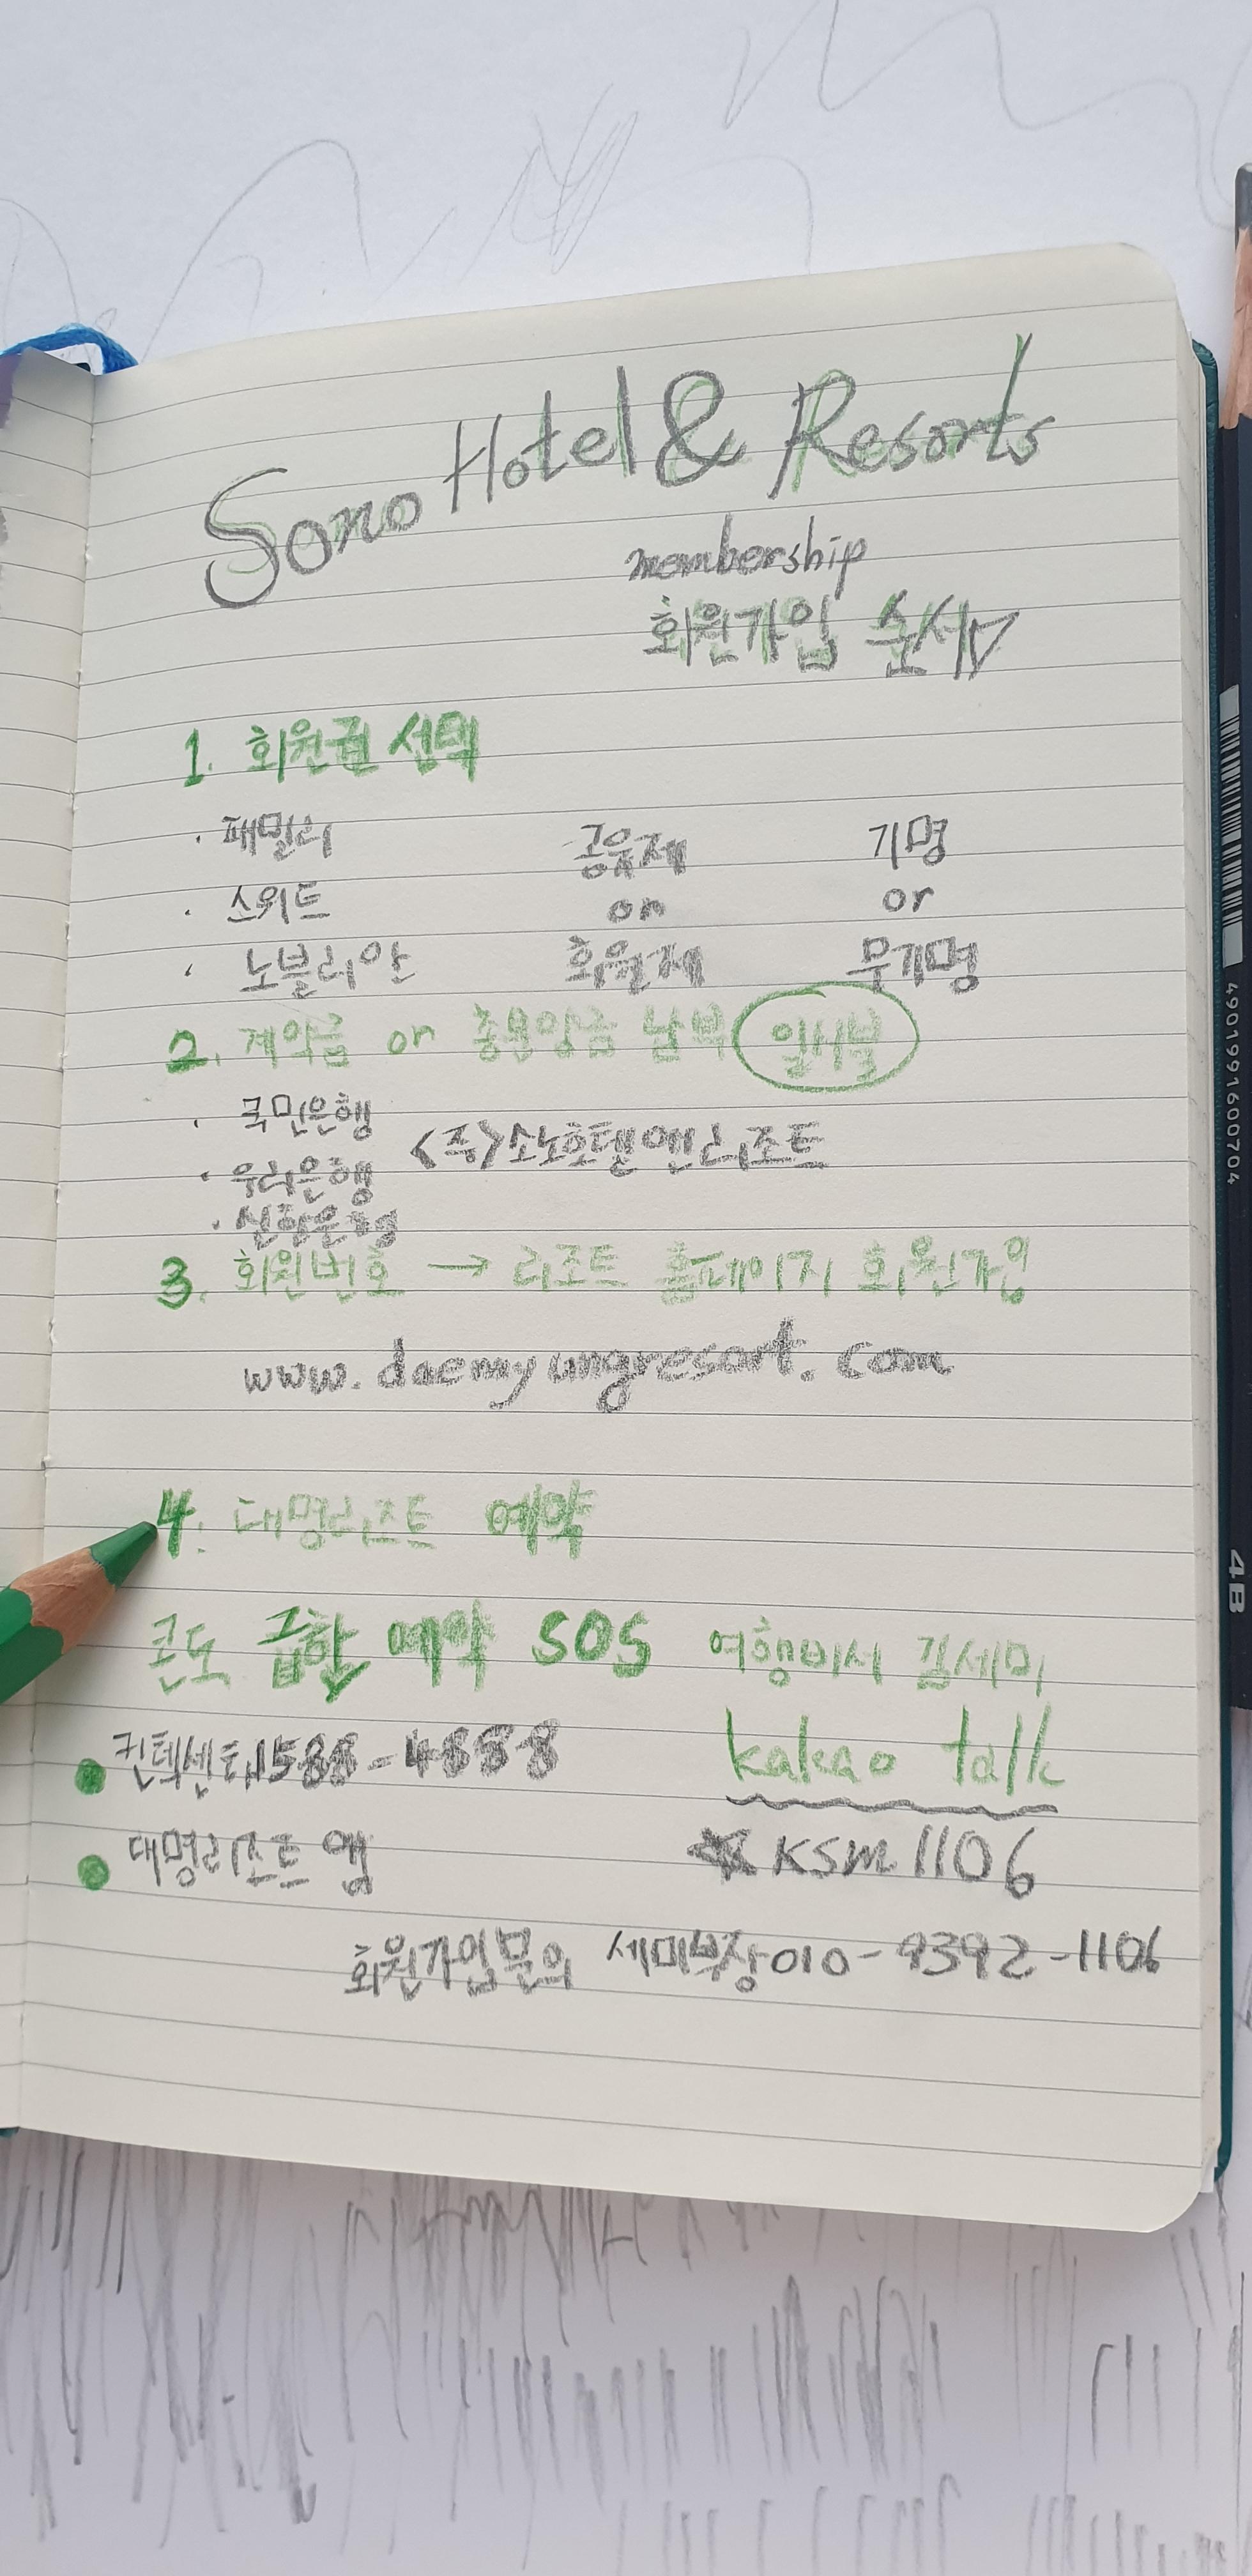 Sono Hotel & Resorts
membership
회원가입 순서▽
1. 회원권 선택
· 패밀리 공유제 기명
· 스위트 or or
· 노블리안 회원제 무기명
2. 계약금 or 총분양금 납부 일시불
· 국민은행
<주>소노호텔앤리조트
· 우리은행
· 신한은행
3. 회원번호 → 리조트 홈페이지 회원가입
www.daemyungresort.com
4. 대명리조트 예약
콘도 급할 예약 SOS 여행비서 김세미
컨텍센터,1588-4888 kakao talk
대명리조트 앱 ★ KSM1106
회원가입문의 세미부장010-9392-1106
4901991600704
4B